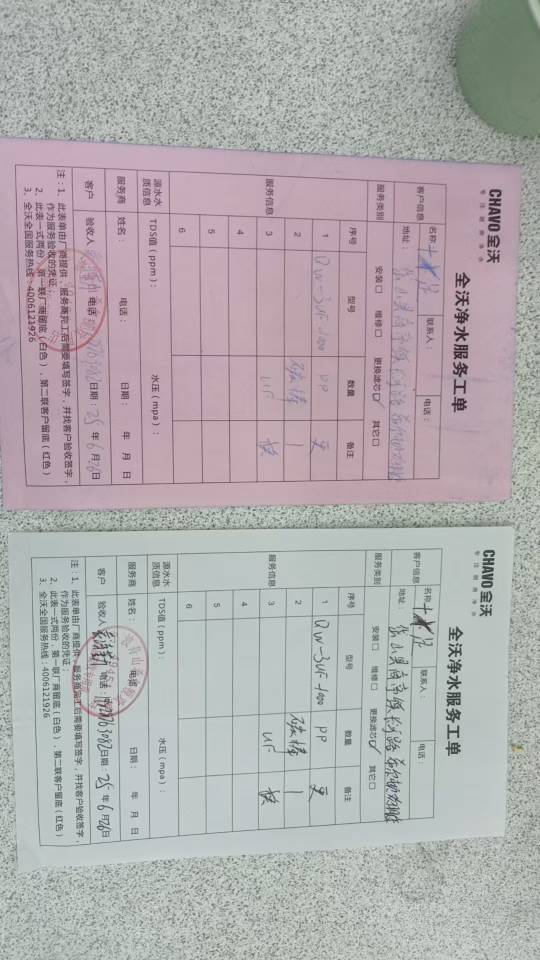 CHAVO全沃
专注健康净水
全沃净水服务工单
客户信息
名称：
联系人：
电话：
地址：
服务类别
安装□ 维修□ 更换滤芯☑ 其它□
服务信息
序号 型号 数量 备注
1 QW-3UF-1400 PP 更
2 碳棒 1
3 UF 换
4
5
6
源水水质信息
TDS值（ppm）： 水压（mpa）：
服务商 姓名： 电话： 日期： 年 月 日
客户 验收人 电话： 日期：25年6月26日
注：1、此表单由厂商提供，服务商完工后需要填写签字，并找客户验收签字，
作为服务验收的凭证；
2、此表一式两份，第一联厂商留底（白色），第二联客户留底（红色）
3、全沃全国服务热线：4006121926
CHAVO全沃
专注健康净水
全沃净水服务工单
客户信息
名称：
联系人：
电话：
地址：
服务类别
安装□ 维修□ 更换滤芯☑ 其它□
服务信息
序号 型号 数量 备注
1 QW-3UF-1400 PP 更
2 碳棒 1
3 UF 换
4
5
6
源水水质信息
TDS值（ppm）： 水压（mpa）：
服务商 姓名： 电话： 日期： 年 月 日
客户 验收人 电话： 日期：25年6月26日
注：1、此表单由厂商提供，服务商完工后需要填写签字，并找客户验收签字，
作为服务验收的凭证；
2、此表一式两份，第一联厂商留底（白色），第二联客户留底（红色）
3、全沃全国服务热线：4006121926